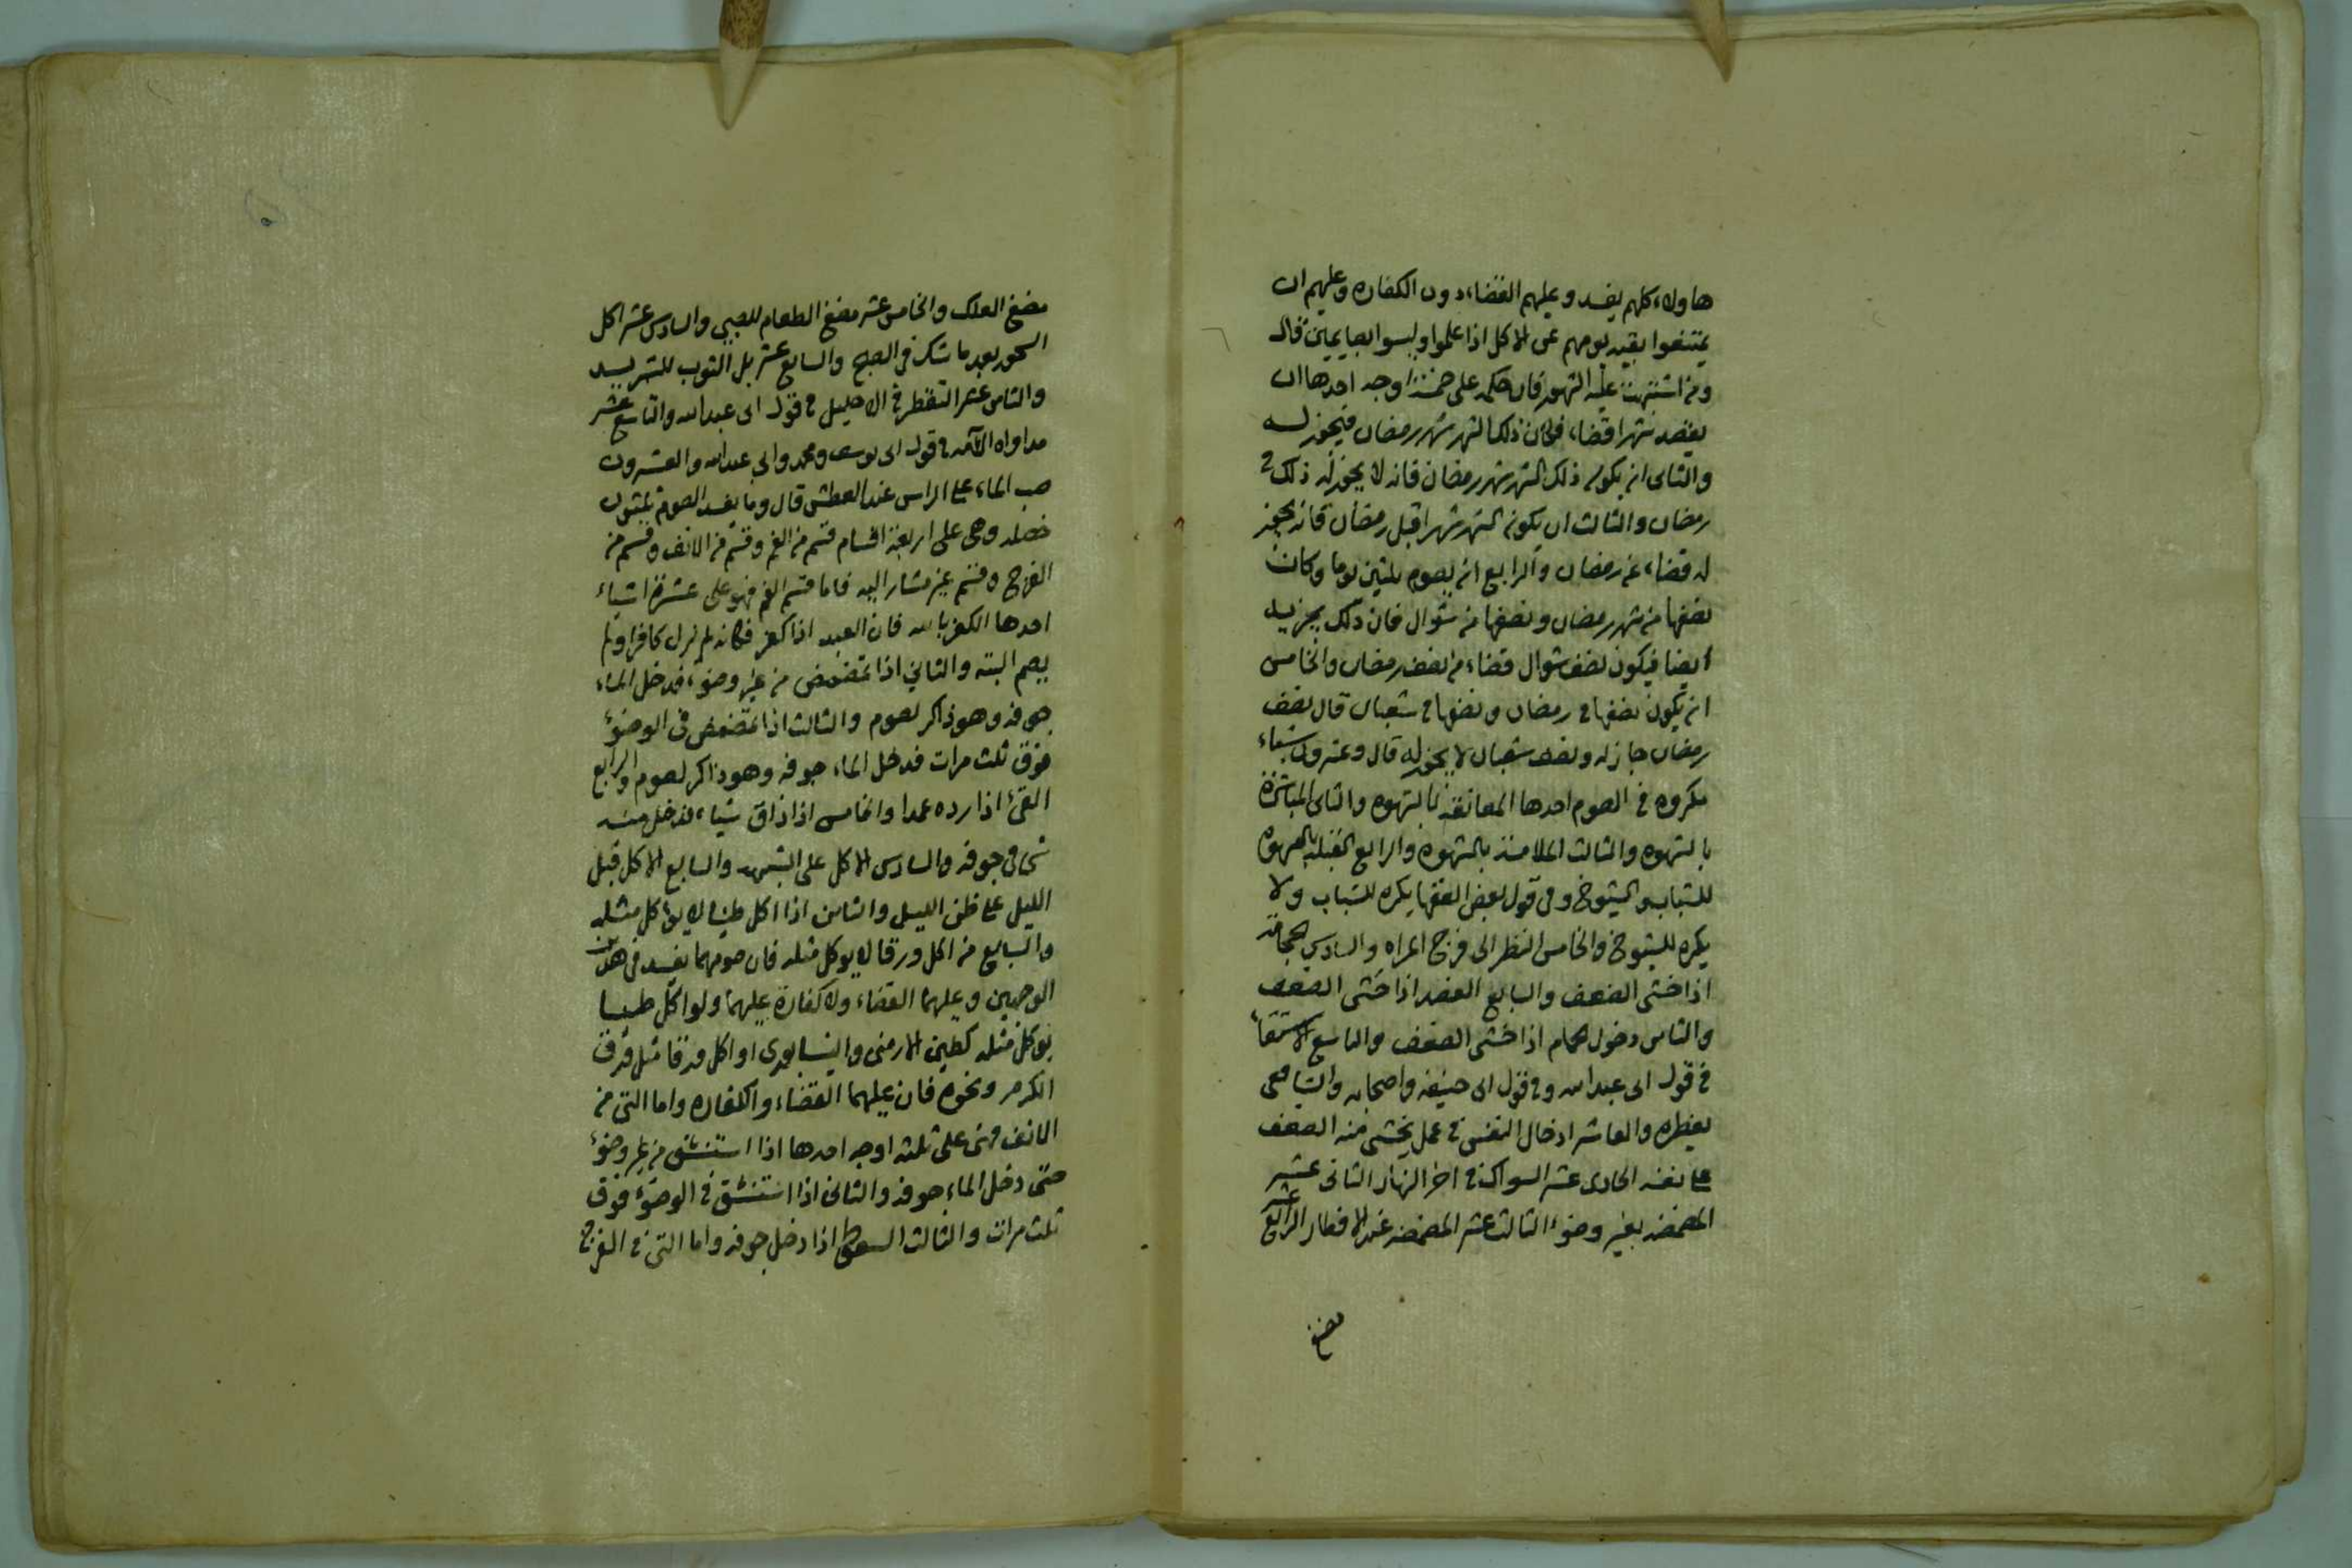 هاولاء كلهم يفسد وعليهم القضاء دون الكفاره وعليهم ان
يمتنعوا بقيه يومهم عن الاكل اذا علموا وليسوا بصايمين قال
ومن اشتبهت عليه الشهور فان حكمه على خمسة اوجه احدها ان
يقصد شهرا قضاء فكان ذلك الشهر شهر رمضان فيجوز له
والثانى ان يكون ذلك الشهر شهر رمضان فانه لا يجوز له ذلك فى
رمضان والثالث ان يكون الشهر شهرا قبل رمضان فانه يجوز
له قضاء عن رمضان والرابع ان يصوم ثلثين يوما وكان
نصفها من شهر رمضان ونصفها من شوال فان ذلك يجزيه
ايضا فيكون نصف شوال قضاء من نصف رمضان والخامس
ان يكون نصفها فى رمضان ونصفها فى شعبان قال نصف
رمضان جاز له ونصف شعبان لا يجوز له قال وعشرون شياء
مكروه فى الصوم احدها المعانقة بالشهوه والثانى المباشرة
بالشهوه والثالث الملامسة بالشهوه والرابع القبلة بالشهوه
للشباب والشيوخ وفى قول بعض الفقها يكره للشباب ولا
يكره للشيوخ والخامس النظر الى فرج المراه والسادس الحجامة
اذا خشى الضعف والسابع الفصد اذا خشى الضعف
والثامن دخول الحمام اذا خشى الضعف والتاسع الاستقاء
فى قول ابى عبدالله وفى قول ابى حنيفه واصحابه والشافعى
يفطره والعاشر ادخال النفس فى عمل يخشى منه الضعف
على نفسه الحادى عشر السواك فى اخر النهار الثانى عشر
المضمضه بغير وضوء الثالث عشر المضمضه عند الافطار الرابع عشر
مضغ
مضغ العلك والخامس عشر مضغ الطعام للصبى والسادس عشر اكل
السحور بعد ما شك فى الصبح والسابع عشر بل الثوب للتبريد
والثامن عشر التقطر فى الاحليل فى قول ابى عبدالله والتاسع عشر
مداواه الآمه فى قول ابى يوسف ومحمد وابى عبدالله والعشرون
صب الماء على الراس عند العطش قال وما يفسد الصوم ثلثون
خصله وهى على اربعة اقسام قسم من الفم وقسم من الانف وقسم من
الفرج وقسم غير مشار اليه فاما قسم الفم فهو على عشرة اشياء
احدها الكفر بالله فان العبد اذا كفر فكانه لم يزل كافرا ولم
يصم البته والثاني اذا تمضمض من غير وضوء فدخل الماء
جوفه وهو ذاكر لصوم والثالث اذا تمضمض فى الوضوء
فوق ثلث مرات فدخل الماء جوفه وهو ذاكر لصوم والرابع
القئ اذا رده عمدا والخامس اذا ذاق شياء فدخل منه
شى فى جوفه والسادس الاكل على الشبهه والسابع الاكل قبل
الليل على ظن الليل والثامن اذا اكل طينا لا يؤكل مثله
والسابع من اكل ورقا لا يوكل مثله فان صومهما يفسد فى هذين
الوجهين وعليهما القضاء ولا كفارة عليهما ولو اكل طينا
يوكل مثله كطين الارمنى والنيسابورى او اكل ورقا مثل ورق
الكرم ونحوه فان عليهما القضاء والكفاره واما التى من
الانف فهى على ثلثه اوجه احدها اذا استنشق من غير وضوء
حتى دخل الماء جوفه والثانى اذا استنشق فى الوضوء فوق
ثلث مرات والثالث السعوط اذا دخل جوفه واما التى فى الفرج